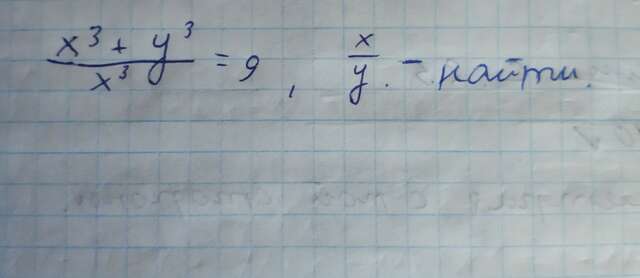 x³ + y³ / x³ = 9, x/y. - найти.